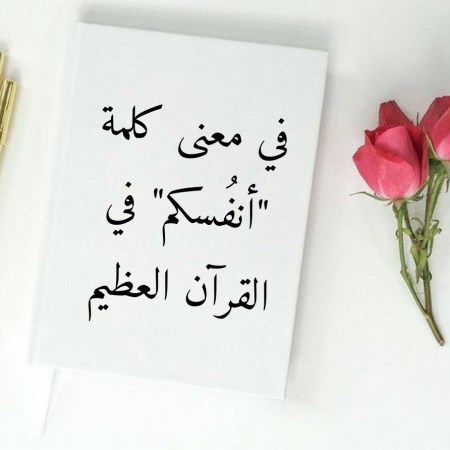 في معنى كلمة
"أنفُسكم" في
القرآن العظيم